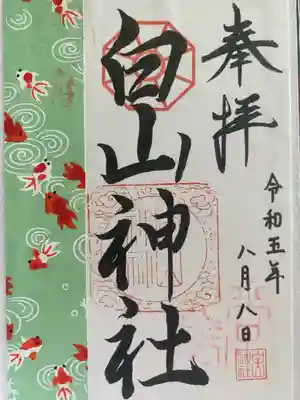 奉拝
令和五年
八月八日
白山神社